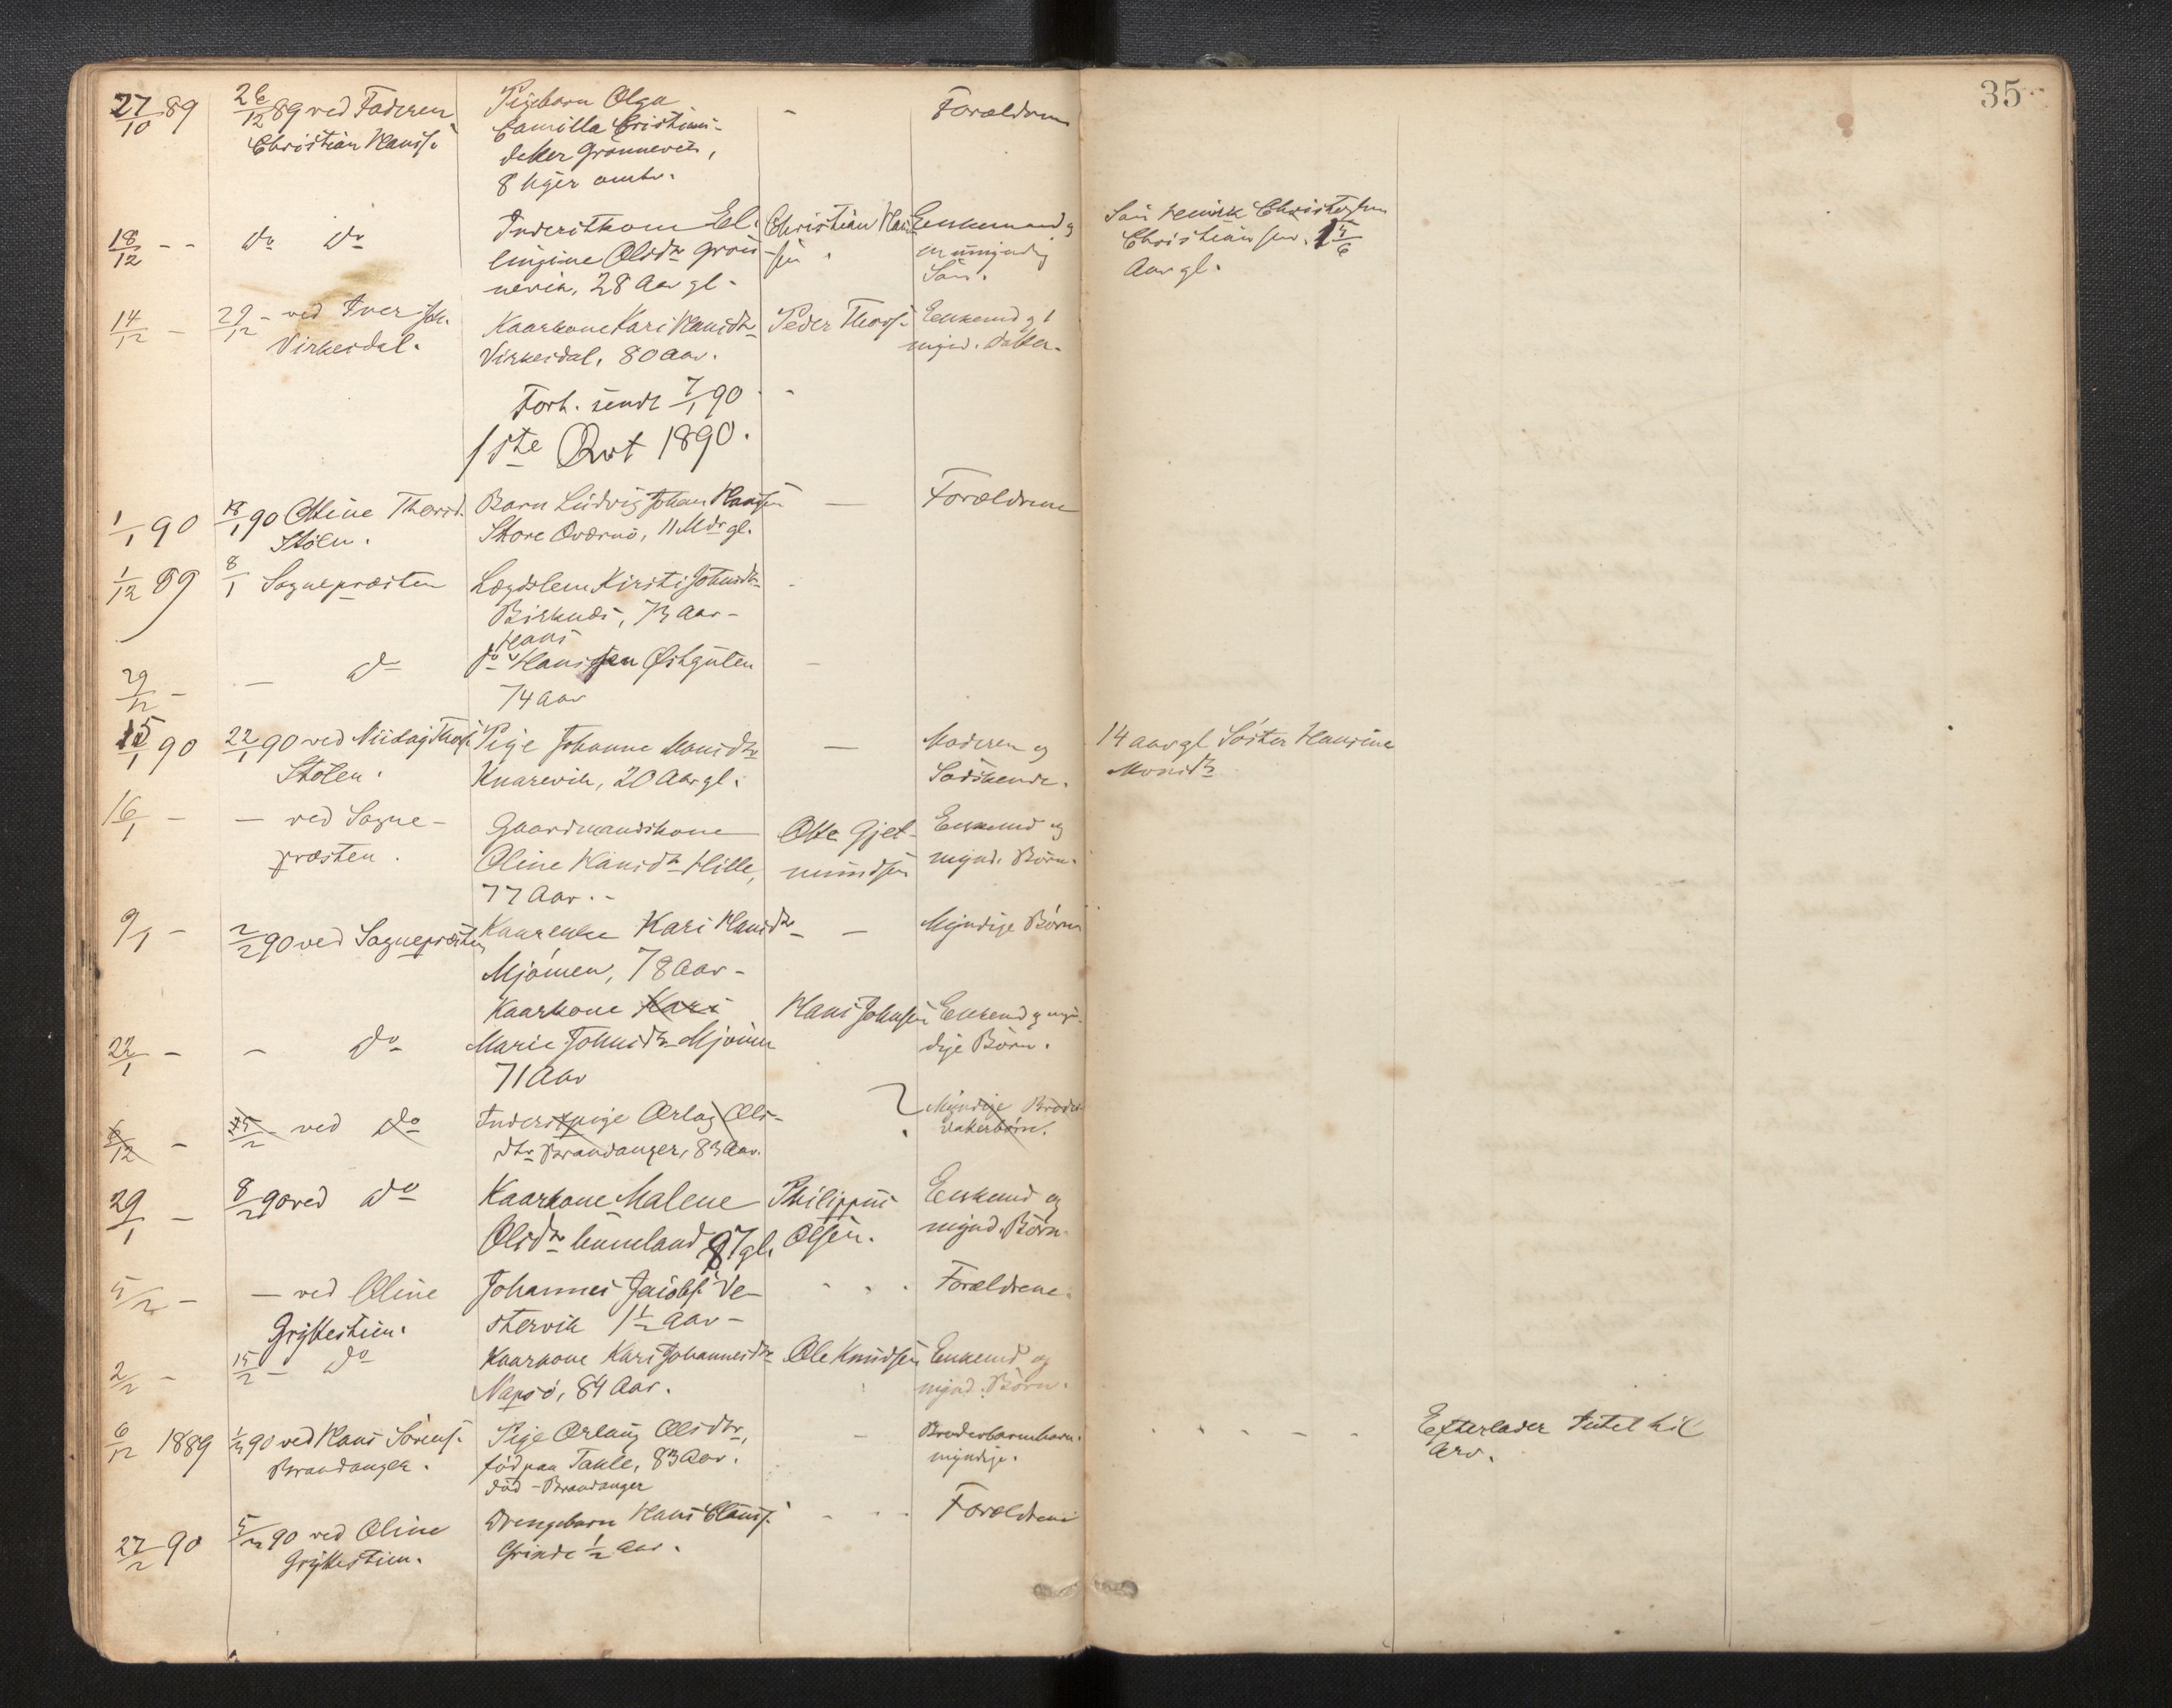 35
27/10 89
26/12 89 ved Faderen
Christian Hanss.
Pigebarn Olga
Camilla Cristians-
datter Grønnevik,
8 Uger omtr.
-
Forældrene
18/12 - -
do do
Inderstkone El.
Olsdtr Grøn-
nevik, 28 Aar gl.
Christian Han-
sen
Enkemand og
en umyndig
Søn.
Søn Henrik Christophen
Christiansen, 1 5/6
Aar gl.
14/12 -
29/12 - ved Iver Joh.
Virkesdal.
Kaarkone Kari Hansdtr
Virkesdal, 80 Aar.
Peder Thors.
Enkemd og 1
mynd. datter.
Forh. sendt 7/1 90
1ste Qvt 1890.
1/1 90
18/1 90 Oline Thord.
Stølen.
Barn Ludvig Johan Hansen
Store Qværnø, 11 Mdr gl.
—
Forældrene
1/12 89
8/1 Sognepræsten
Lægdslem Kirsti Johnsdtr
Birknes, 73 Aar -
29/12 -
— do
Hans
do Hanssen Østguten
74 Aar
15/1 90
22/1 90 ved Nidag Thos.
Stølen.
Pige Johanne Monsdtr
Knarevik, 20 Aar gl.
—
Moderen og
Sødskende.
14 aar gl Søster Hansine
Monsdtr
16/1 -
— ved Sogne-
præsten.
Gaardmandskone
Oline Hansdtr Hille,
77 Aar. -
Otte Gjet-
mundsen
Enkemd og
mynd. Børn.
9/1 -
2/2 90 ved Sognepræsten
Kaarenke Kari Hansdtr
Mjømen, 78 Aar -
—
Myndige Børn
22/1 -
- do
Kaarkone Kari
Marie Johnsdtr Mjømen
71 Aar
Hans Johnsen
Enkemd og myn-
dige Børn.
6/12 -
ved do
Inderstpige Ørlag Ols-
dtr Brandanger, 83 Aar.
Myndige Broder
datterbørn.
29/1 -
8/2 90 ved do
Kaarkone Malene
Olsdtr 87 gl.
Philippus
Olsen.
Enkemd og
mynd. Børn.
5/2 -
— ved Oline
Gryttestuen.
Johannes Jacobs. Ve-
stervik 1 1/2 Aar -
Forældrene.
2/2 -
15/2 - do
Kaarkone Kari Johannesdtr
Napsø, 84 Aar.
Ole Knudsen
Enkemd og
mynd. Børn.
6/12 1889
90 ved Hans Sørens.
Brandanger.
Pige Ørlaug Olsdtr,
født paa Takle, 83 Aar.
død - Brandanger
Broderbarnbarn.
myndige.
Efterlader Intet til
Arv.
27/2 90
90 ved Oline
Gryttestuen.
Drengebarn Hans Claus.
Grinde 1/2 Aar.
Forældrene